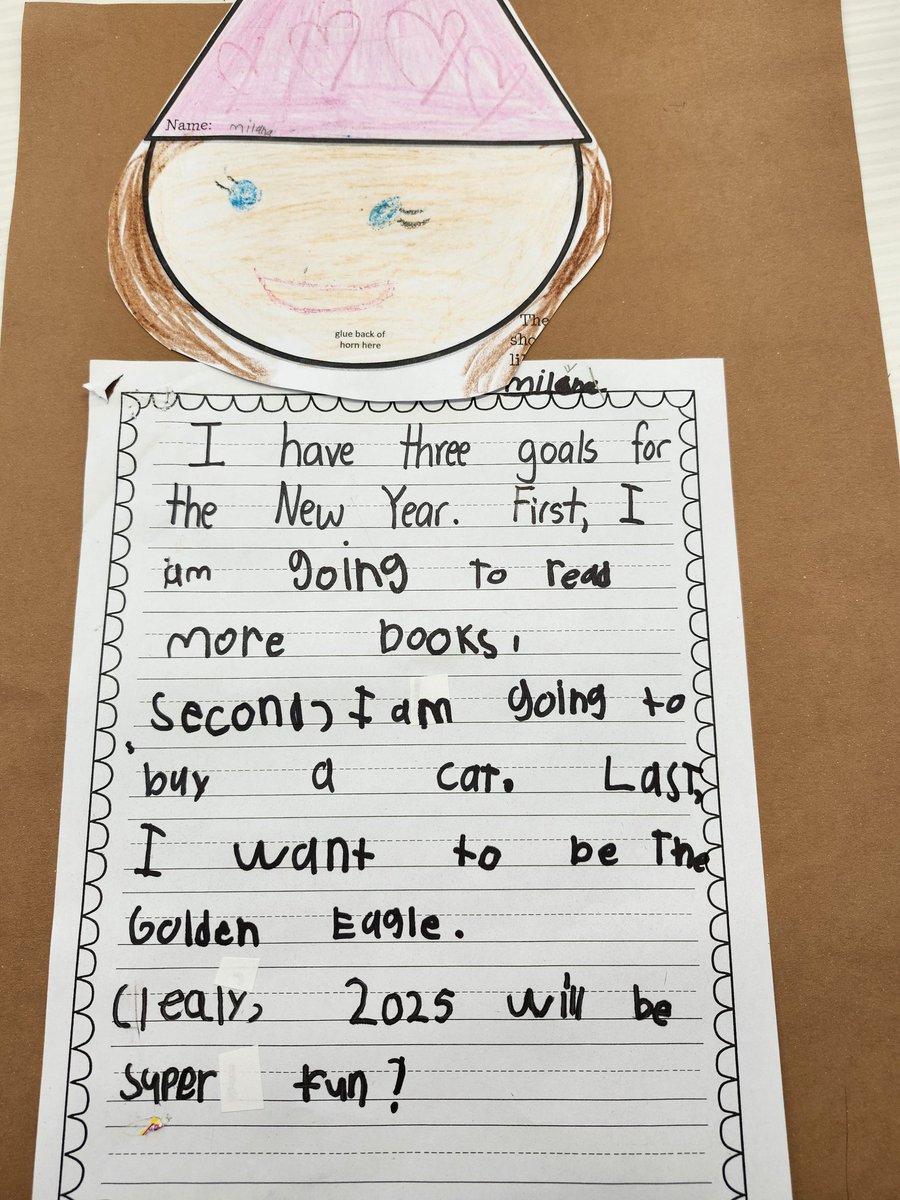 Name: milana
glue back of
horn here
The
sho
li
milana.
I have three goals for
the New Year. First, I
am going to read
more books.
Second, I am going to
buy a cat. Last,
I want to be The
Golden Eagle.
Clealy, 2025 will be
super fun!